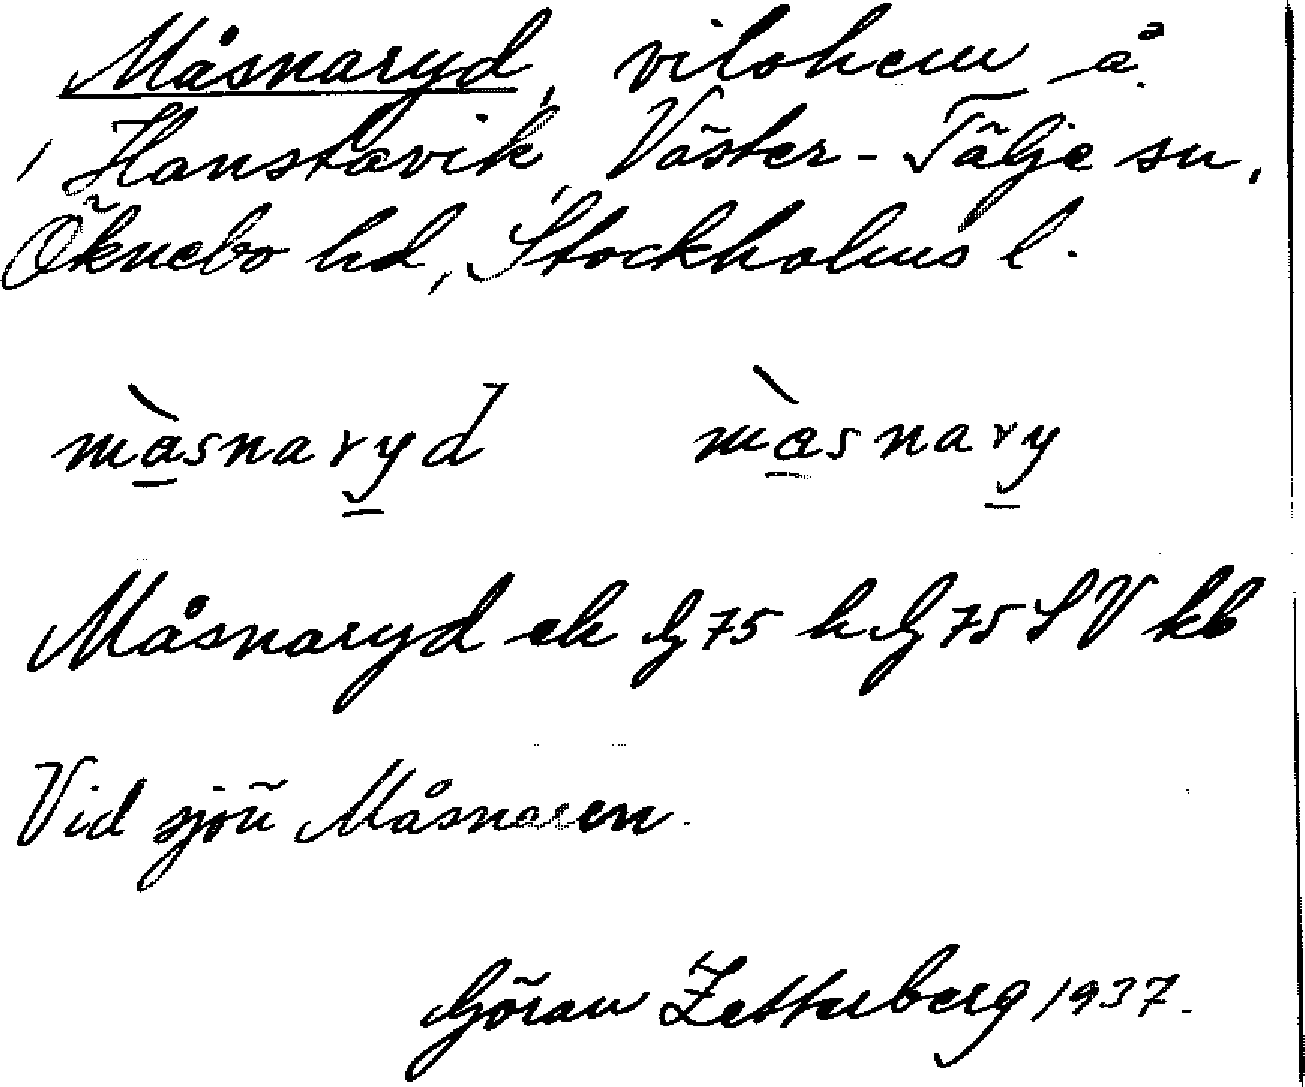 Måsnaryd, vilohem å
Hanstavik, Väster-Tälje sn,
Öknebo hd, Stockholms l.
màsnaryd màsnary
Måsnaryd ek G 75 h G 75 SV kb
Vid sjön Måsnaren.
Göran Zetterberg 1937.